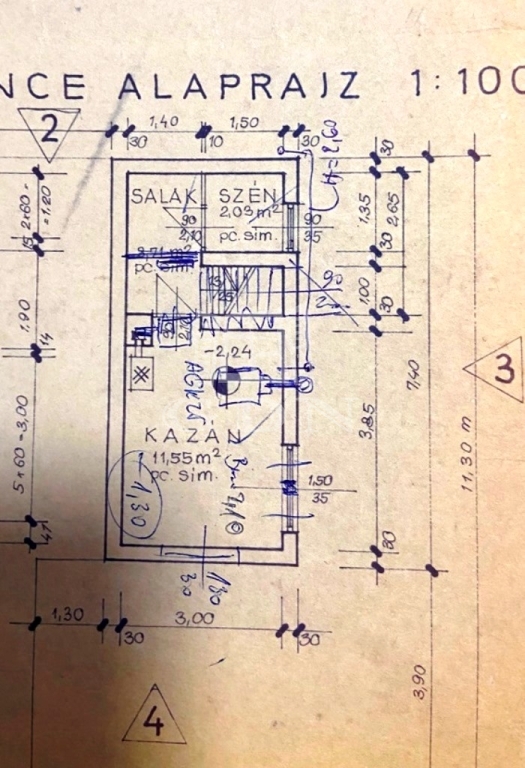 NCE ALAPRAJZ 1:100
2
1,40 1,50
30 10 30 30
H=2,60
SALAK SZÉN
2,03 m²
90
2,10
pc. sim.
90
35
pc. sim.
1,35
2,65
30
1,00
30
90
2+60=
=1.20
1.90
14
5*60=3,00
-2,24
KAZÁN
11,55 m²
pc. sim.
1,30
1,50
35
3,85
7,40
11,30 m
3
30
1,30 3,00
30 30
3,90
4